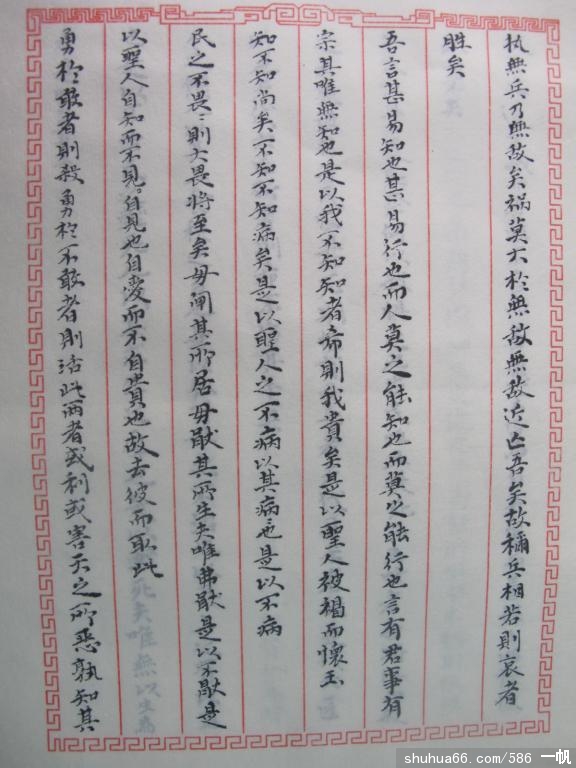 执無兵乃無敌矣祸莫大於無敌無敌近亡吾矣故稱兵相若則哀者
胜矣
吾言甚易知也甚易行也而人莫之能知也而莫之能行也言有君事有
宗其唯無知也是以我不知知者希則我貴矣是以聖人被褐而懷玉
知不知尚矣不知不知病矣是以聖人之不病以其病病也是以不病
民之不畏畏則大畏將至矣毋闸其所居毋猒其所生夫唯弗猒是以不猒是
以聖人自知而不見自見也自愛而不自貴也故去彼而取此
勇於敢者則殺勇於不敢者則活此两者或利或害天之所惡孰知其
shuhua66.com/586 一帆